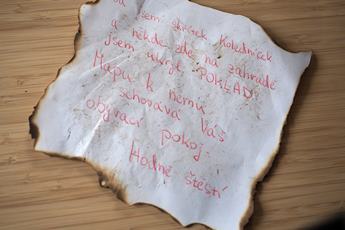 jsem skřítek Koledníček
a někde zde na zahradě
jsem ukryl POKLAD
Mapu k němu
schovává Váš
obývací pokoj.
Hodně štěstí